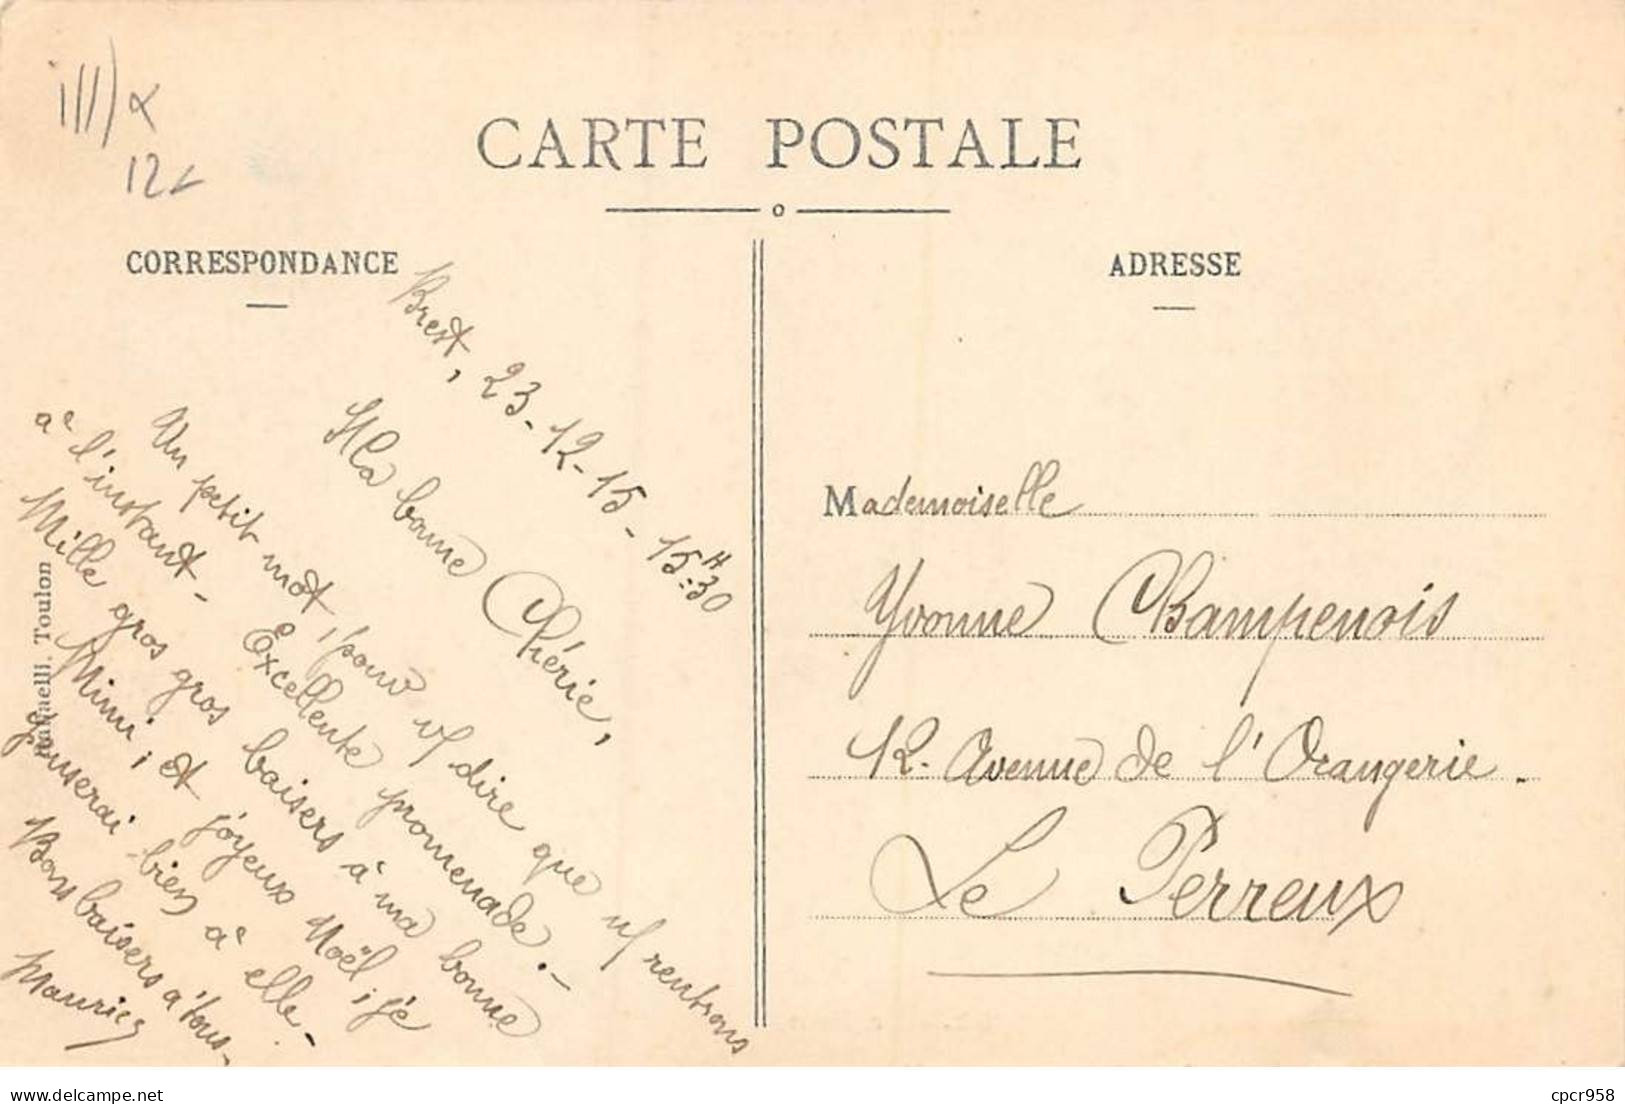 III) α
12
CARTE POSTALE
CORRESPONDANCE
ADRESSE
Brest, 23-12-15 - 15H:30
Ma bonne Chérie,
Un petit mot, pour vs dire que ns rentrons
à l'instant - Excellente promenade. -
Mille gros gros baisers à ma bonne
Mimi; et joyeux Noël; je
penserai bien à elle. -
Bons baisers à tous -
Maurice
Raffaelli. Toulon
Mademoiselle
Yvonne Champenois
12. Avenue de l'Orangerie.
Le Perreux
cpcr958